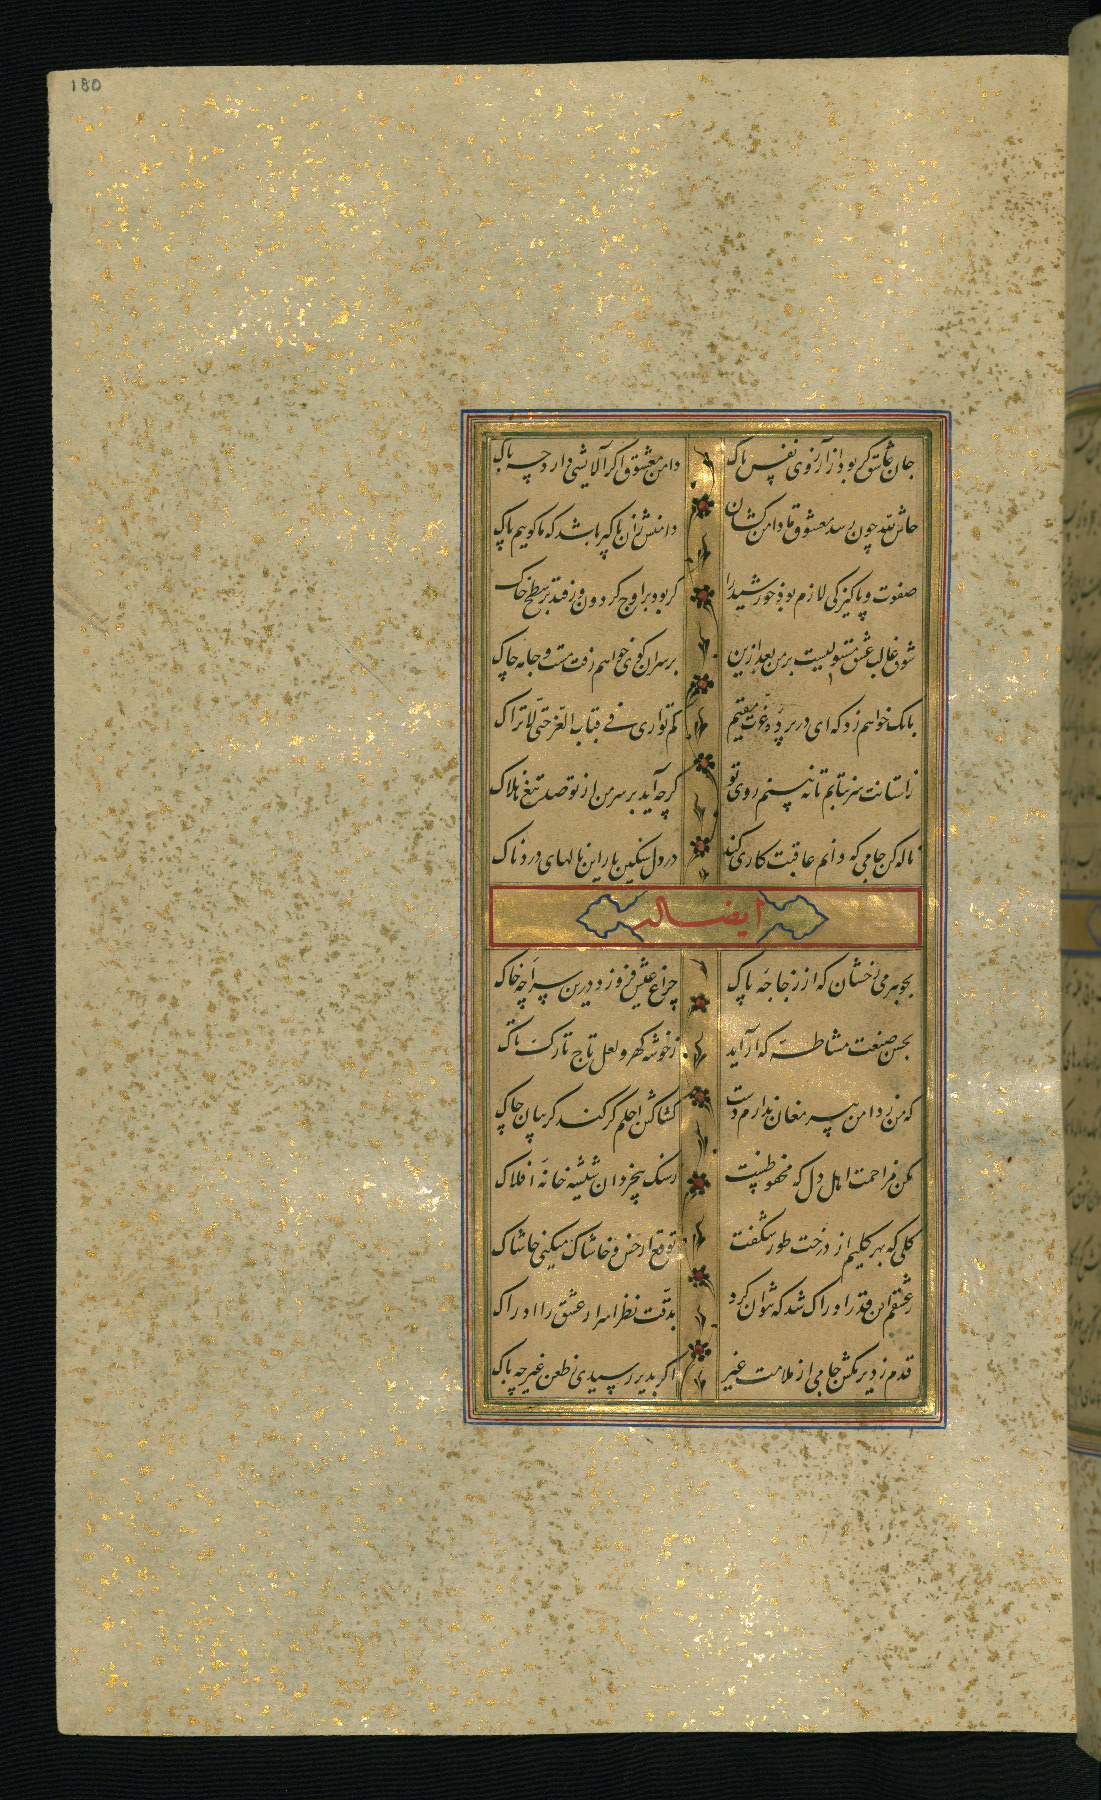 180
جان عاشق کر بود از آرزوی نفس پاک دامن معشوق اکر آلایشی دارد چه باک
حاش لله چون رسد معشوق ما دامن کشان دامنش زان پاکتر باشد که ما کوییم پاک
صفوت و پاکیزکی لازم بود خورشید را کر بود بر اوج کردون ور فتد بر سطح خاک
شوق غالب عشق مستولیست بر من بعد ازین بر سر آن کوی خواهم رفت مست و جامه چاک
بانک خواهم زد که ای در پرده عزت مقیم کم تواری فی قباب العز حتی لا تراک
ز آستانت سر نتابم تا نه بینم روی تو کرچه آید بر سر من از تو صد تیغ هلاک
ناله کن جامی که دانم عاقبت کاری کند در دل سنکین یار این نالهای دردناک
ایضا له
بجوهر می رخشان که از زجاجه پاک چراغ عیش فروزد درین سراچه خاک
بحسن صنعت مشاطه که آراید ز خوشه کهر و لعل تاج تارک تاک
که من ز دامن پیر مغان ندارم دست کشاکش اجلم کر کند کریبان چاک
مکن مزاحمت اهل دل که محفوظست ز سنک بیخردان شیشه خانه افلاک
کلی که بهر کلیم از درخت طور شکفت توقع از خس و خاشاک میکنی خاشاک
ز عشقم این قدر ادراک شد که نتوان کرد بدقت نظر اسرار عشق را ادراک
قدم ز دیر مکش جامی از ملامت غیر اکر بدیر رسیدی ز طعن غیر چه باک